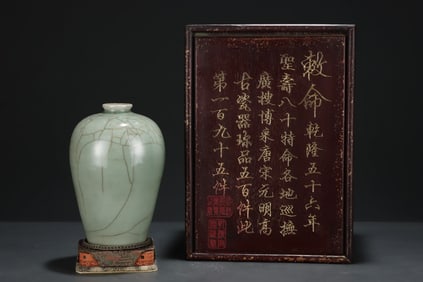 敕命 乾隆五十六年
聖壽八十特命各地巡撫
廣搜博采唐宋元明高
古瓷器珍品五百件此
第一百九十五件